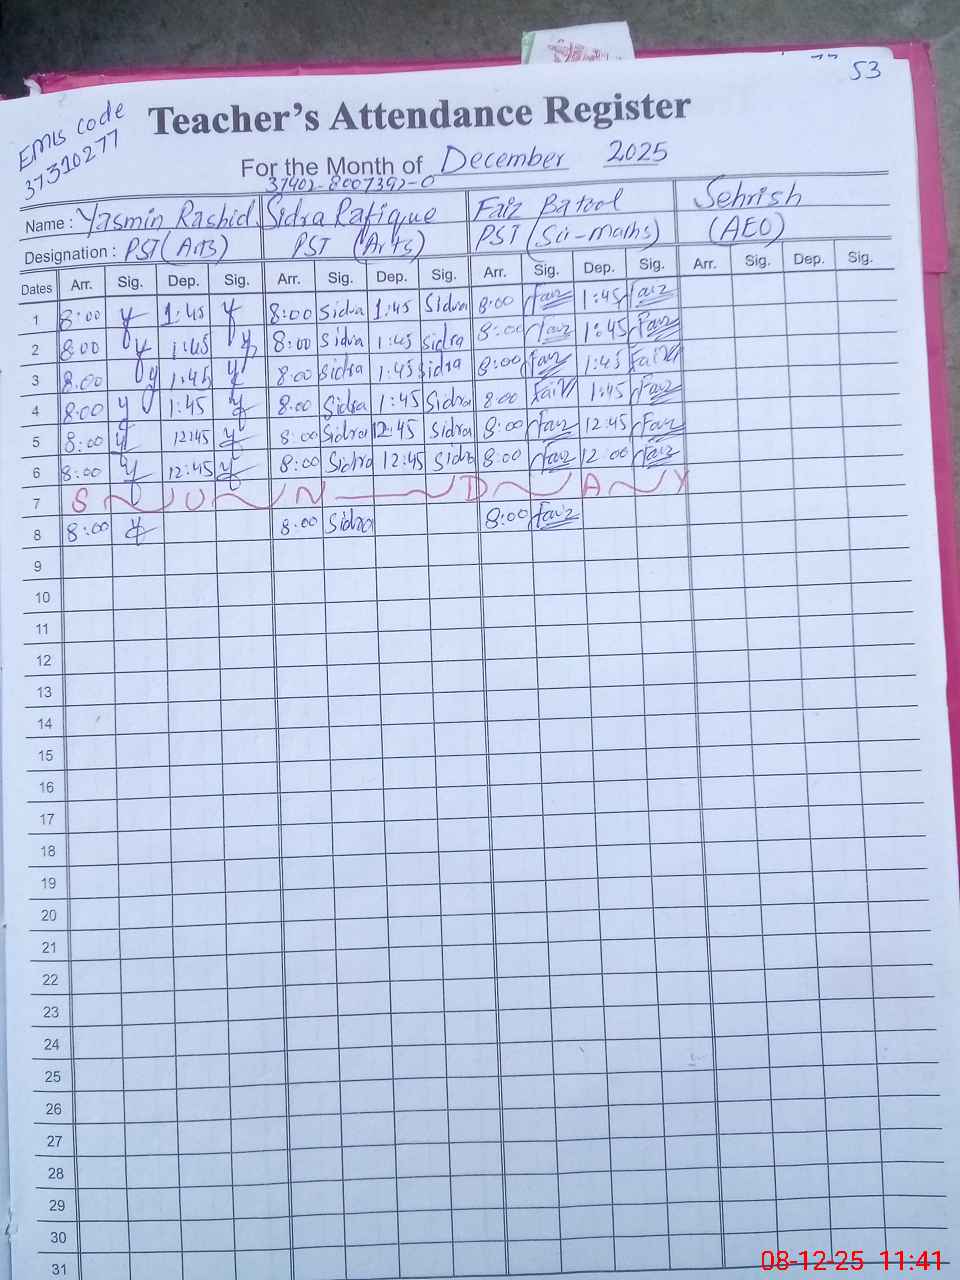 53
EMIS code
37310277
Teacher's Attendance Register
For the Month of December 2025
37402-8007392-0
Name : Yasmin Rashid Sidra Rafique Faiz Batool Sehrish
Designation : PST (Arts) PST (Arts) PST (Sci-maths) (AEO)
Dates Arr. Sig. Dep. Sig. Arr. Sig. Dep. Sig. Arr. Sig. Dep. Sig. Arr. Sig. Dep. Sig.
1 8:00 y 1:45 y 8:00 Sidra 1:45 Sidra 8:00 Faiz 1:45 Faiz
2 8:00 y 1:45 y 8:00 Sidra 1:45 Sidra 8:00 Faiz 1:45 Faiz
3 8:00 y 1:45 y 8:00 Sidra 1:45 Sidra 8:00 Faiz 1:45 Faiz
4 8:00 y 1:45 y 8:00 Sidra 1:45 Sidra 8:00 Faiz 1:45 Faiz
5 8:00 y 12:45 y 8:00 Sidra 12:45 Sidra 8:00 Faiz 12:45 Faiz
6 8:00 y 12:45 y 8:00 Sidra 12:45 Sidra 8:00 Faiz 12:00 Faiz
7 S U N D A Y
8 8:00 y 8:00 Sidra 8:00 Faiz
9
10
11
12
13
14
15
16
17
18
19
20
21
22
23
24
25
26
27
28
29
30
31
08-12-25 11:41